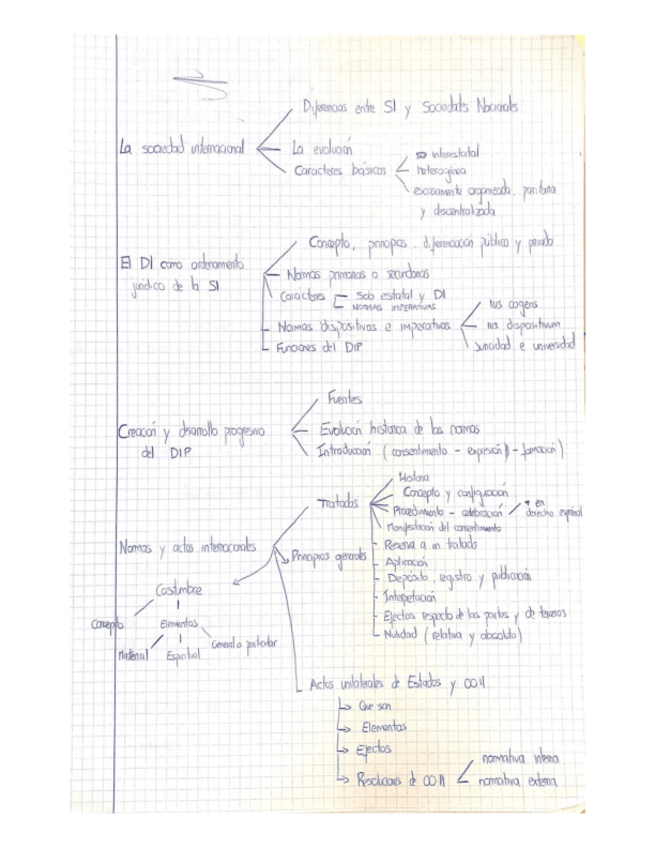 Diferencias entre SI y Sociedades Nacionales
La sociedad internacional
La evolución
Caracteres básicos
interestatal
heterogénea
escasamente organizada, paritaria
y descentralizada
Concepto, principios, diferenciación público y privado
El DI como ordenamiento
jurídico de la SI
Normas primarias o secundarias
Caracteres
Sob estatal y DI
NORMAS IMPERATIVAS
Normas dispositivas e imperativas
Ius cogens
Ius dispositivum
juricidad e universidad
Funciones del DIP
Fuentes
Creación y desarrollo progresivo
del DIP
Evolución histórica de las normas
Introducción (consentimiento - expresión - formación)
Historia
Tratados
Concepto y configuración
Procedimiento - celebración
* en
derecho español
Manifestación del consentimiento
Normas y actos internacionales
Principios generales
Reserva a un tratado
Aplicación
Depósito, registro y publicación
Interpretación
Efectos respecto de las partes y de terceros
Nulidad (relativa y absoluta)
Costumbre
Concepto
Elementos
General o particular
Material
Espiritual
Actos unilaterales de Estados y OOII
Que son
Elementos
Efectos
Resoluciones de OOII
normativa interna
normativa externa